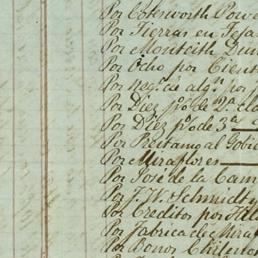 Por Cotesworth Powe
Por Tierras en Teja
Por Monteith Dun
Por Ocho por Cient
Por Neg.s de alg.n por
Por Diez p.r% de 2.a cla
Por Diez p.r% de 3.a
Por Prestamo al Gobie
Por Miraflores
Por José de la Cam
Por J. W. Schmidt y
Por Creditos por
Por Fabrica de Mira
Por Bonos Chileno